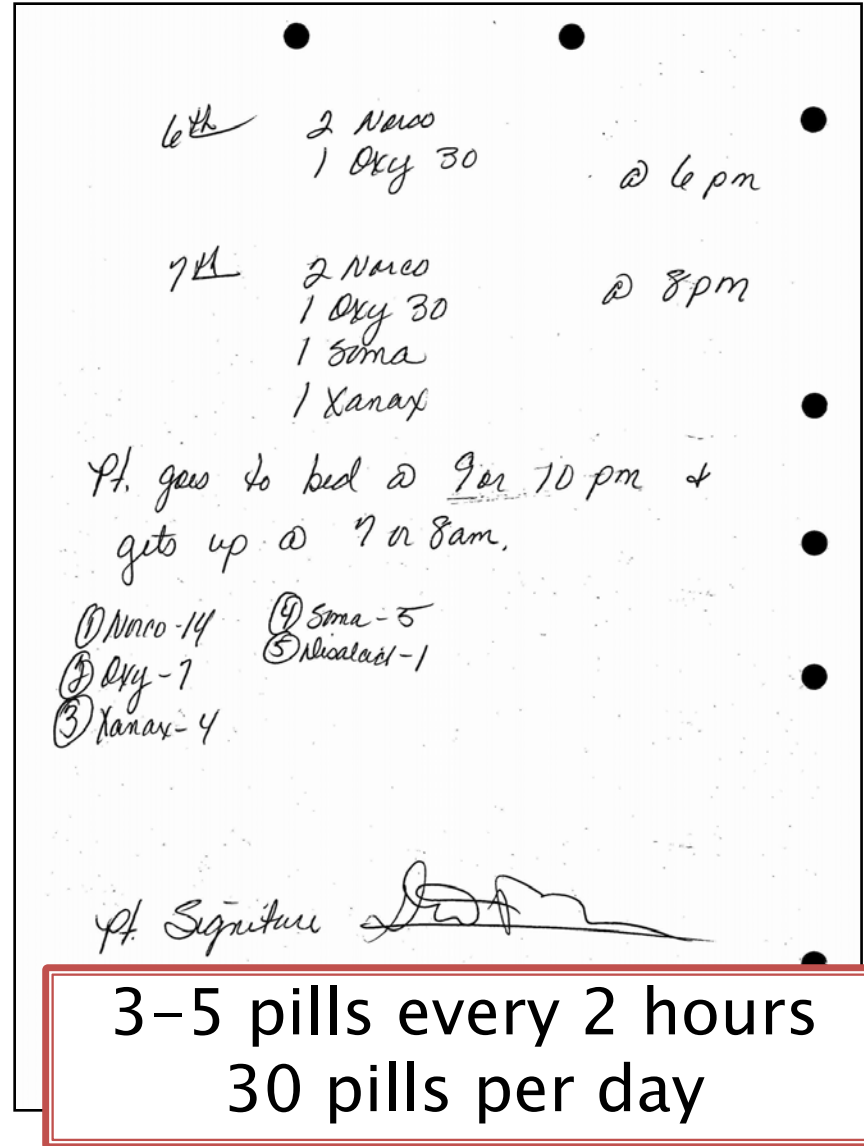 6th 2 Norco
1 Oxy 30 @ 6 pm
7th 2 Norco @ 8 pm
1 Oxy 30
1 Soma
1 Xanax
Pt. goes to bed @ 9 or 10 pm &
gets up @ 7 or 8am.
① Norco - 14 ④ Soma - 5
② Oxy - 7 ⑤ - 1
③ Xanax - 4
pt. Signiture
3-5 pills every 2 hours
30 pills per day